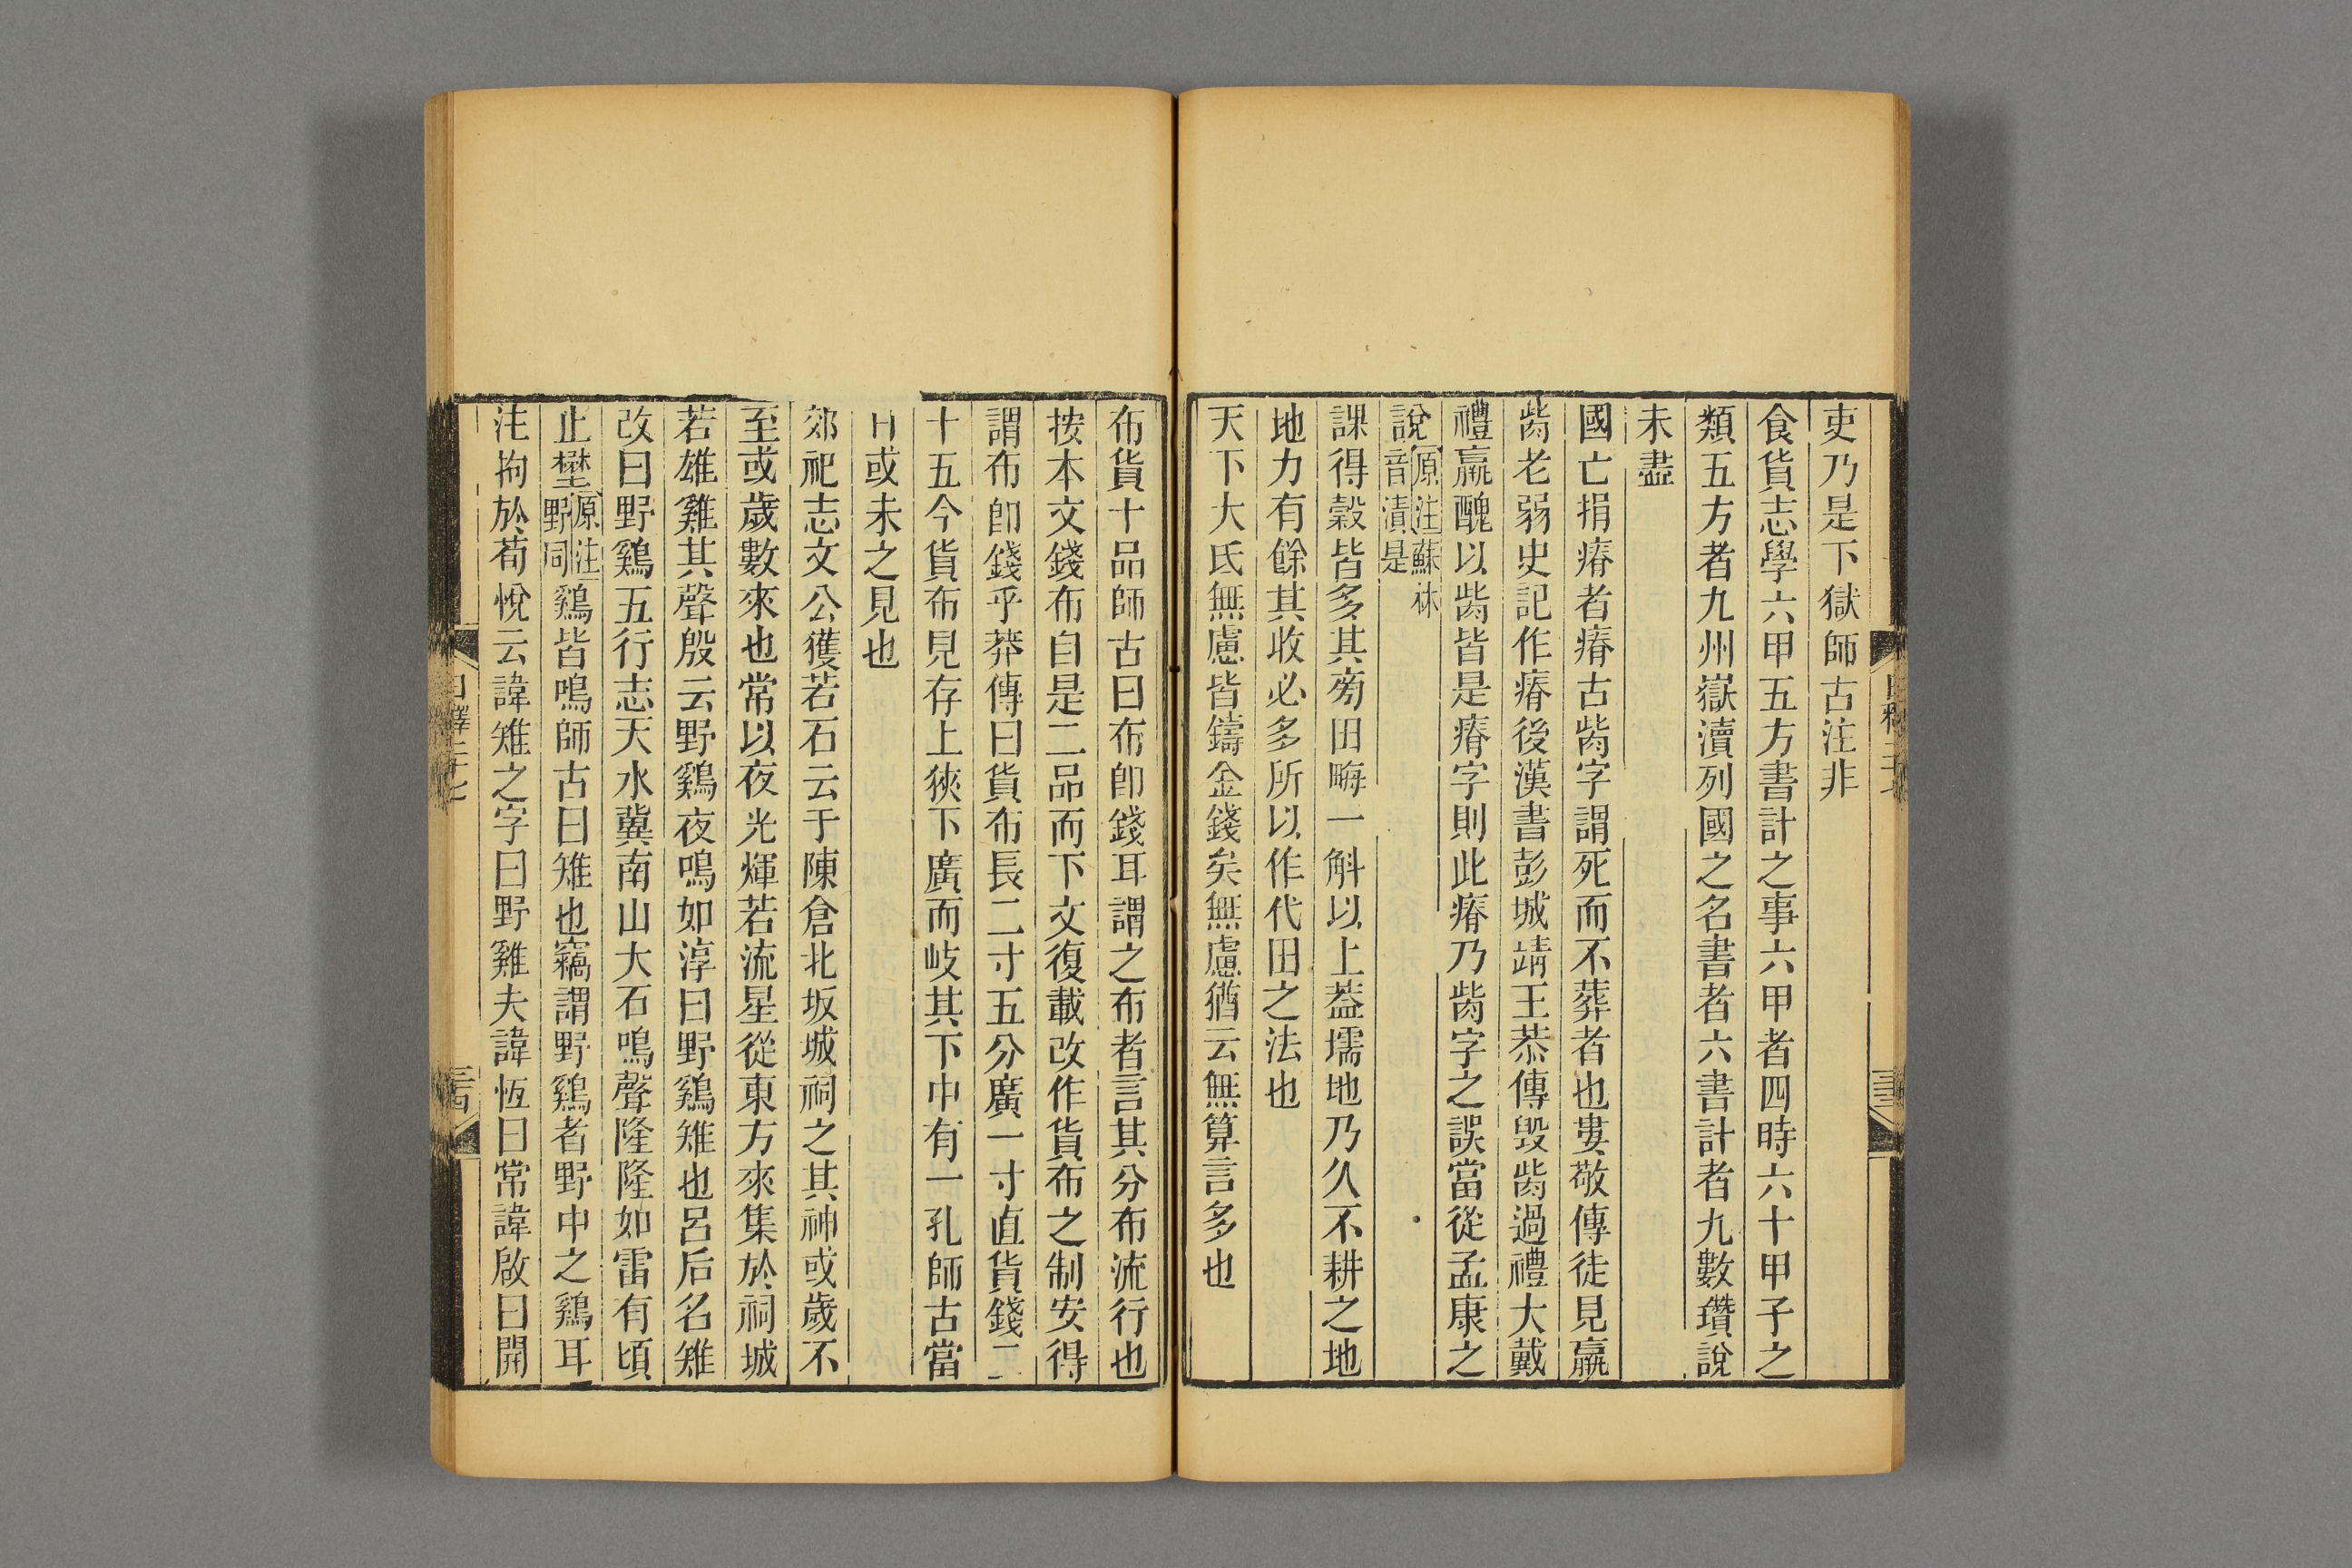 吏乃是下獄師古注非
食貨志學六甲五方書計之事六甲者四時六十甲子之
類五方者九州嶽瀆列國之名書者六書計者九數瓚說
未盡
國亡捐瘠者瘠古胔字謂死而不葬者也婁敬傳徒見羸
胔老弱史記作瘠後漢書彭城靖王恭傳毀胔過禮大戴
禮羸醜以胔皆是瘠字則此瘠乃胔字之誤當從孟康之
說原注蘇林
音漬是
課得穀皆多其旁田畮一斛以上蓋壖地乃久不耕之地
地力有餘其收必多所以作代田之法也
天下大氐無慮皆鑄金錢矣無慮猶云無算言多也
布貨十品師古曰布卽錢耳謂之布者言其分布流行也
按本文錢布自是二品而下文復載改作貨布之制安得
謂布卽錢乎莽傳曰貨布長二寸五分廣一寸直貨錢二
十五今貨布見存上狹下廣而岐其下中有一孔師古當
日或未之見也
郊祀志文公獲若石云于陳倉北坂城祠之其神或歲不
至或歲數來也常以夜光煇若流星從東方來集於祠城
若雄雞其聲殷云野鷄夜鳴如淳曰野鷄雉也呂后名雉
改曰野鷄五行志天水冀南山大石鳴聲隆隆如雷有頃
止壄原注
野同鷄皆鳴師古曰雉也竊謂野鷄者野中之鷄耳
注拘於荀悅云諱雉之字曰野雞夫諱恆曰常諱啟曰開
日釋二十七
三四